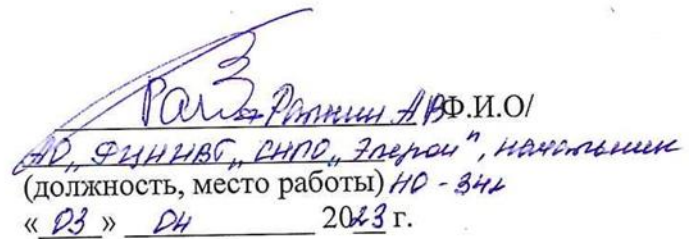 Ралкин АВ Ф.И.О/
АО „ФЦНИВТ „СНПО „Элерон", начальник
(должность, место работы) НО - 341
« 03 » 04 2023 г.